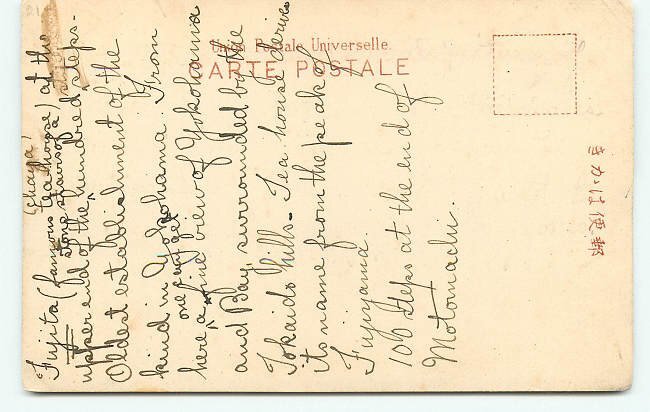 Union Postale Universelle.
CARTE POSTALE
きかは便郵
Chaya
Fujita (famous tea house) at the
stone stairs of a
upper end of the hundred steps.
Oldest establishment of the
kind in Yokohama. From
one can get
here a fine view of Yokohama
and Bay, surrounded by the
Tokaido hills. Tea house derives
its name from the peak of
Fujiyama.
100 steps at the end of
Motomachi.